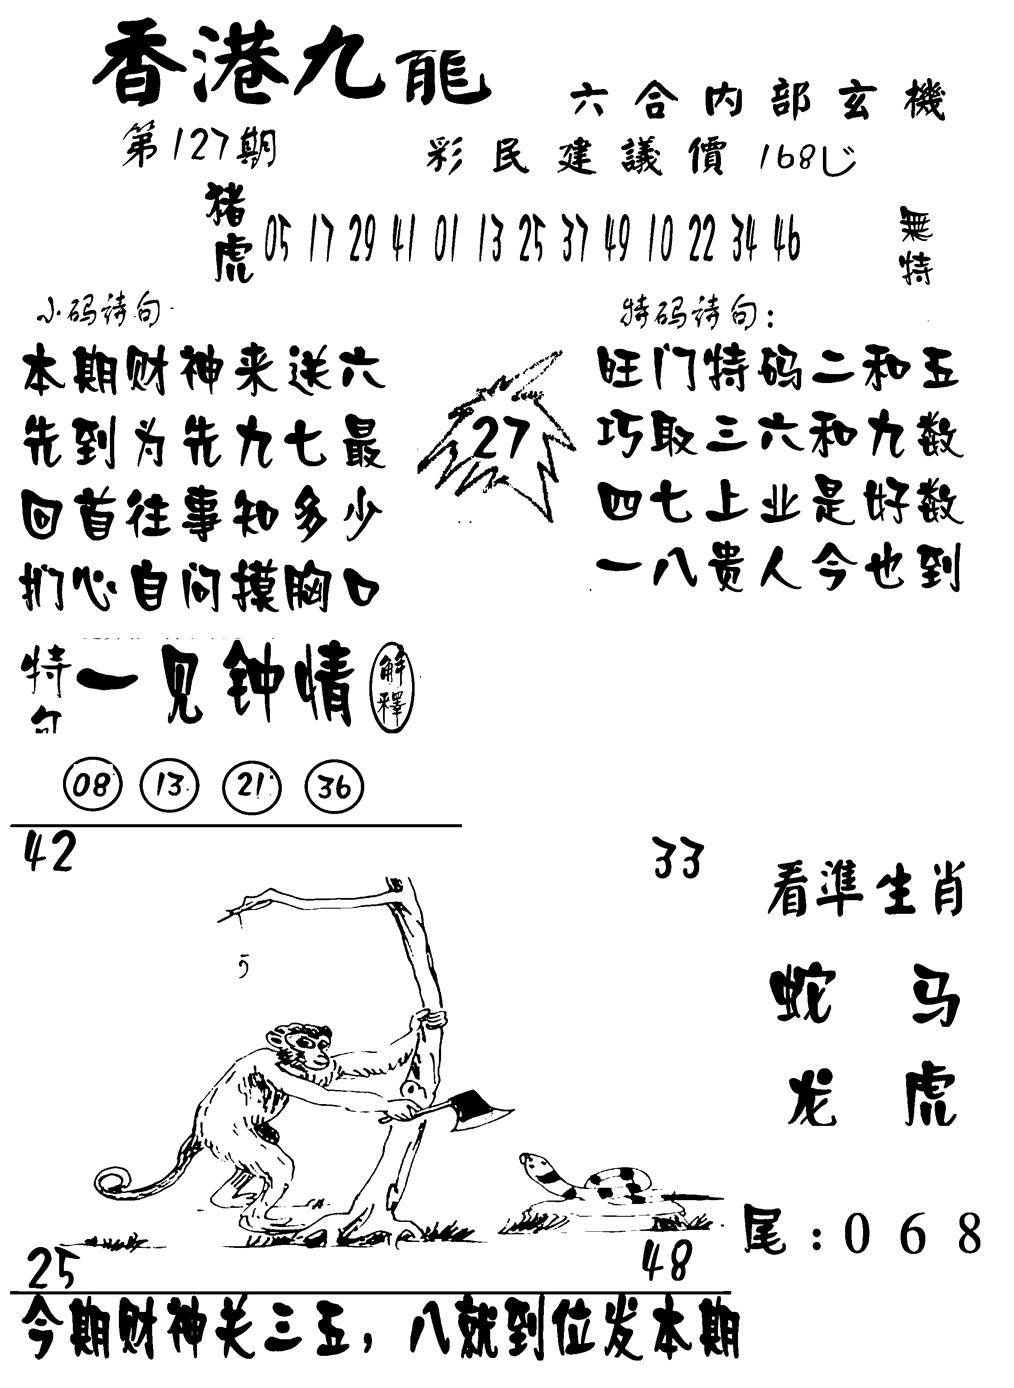 香港九龍
六合内部玄機
第127期
彩民建議價168じ
猪虎
05 17 29 41 01 13 25 37 49 10 22 34 46
無特
小码诗句
本期财神来送六
先到为先九七最
回首往事知多少
扪心自问摸胸口
27
特码诗句：
旺门特码二和五
巧取三六和九数
四七上业是好数
一八贵人今也到
特句
一见钟情
解釋
08 13 21 36
42
33
5
看準生肖
蛇 马
龙 虎
尾：0 6 8
25
48
今期财神关三五，八就到位发本期